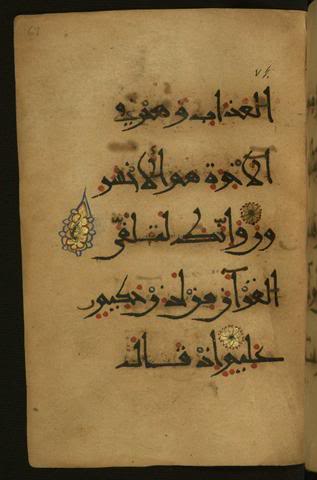 العذاب وهم في
الآخرة هم الأخسر
ون وإنك لتلقى
القرآن من لدن حكيم
عليم إذ قال